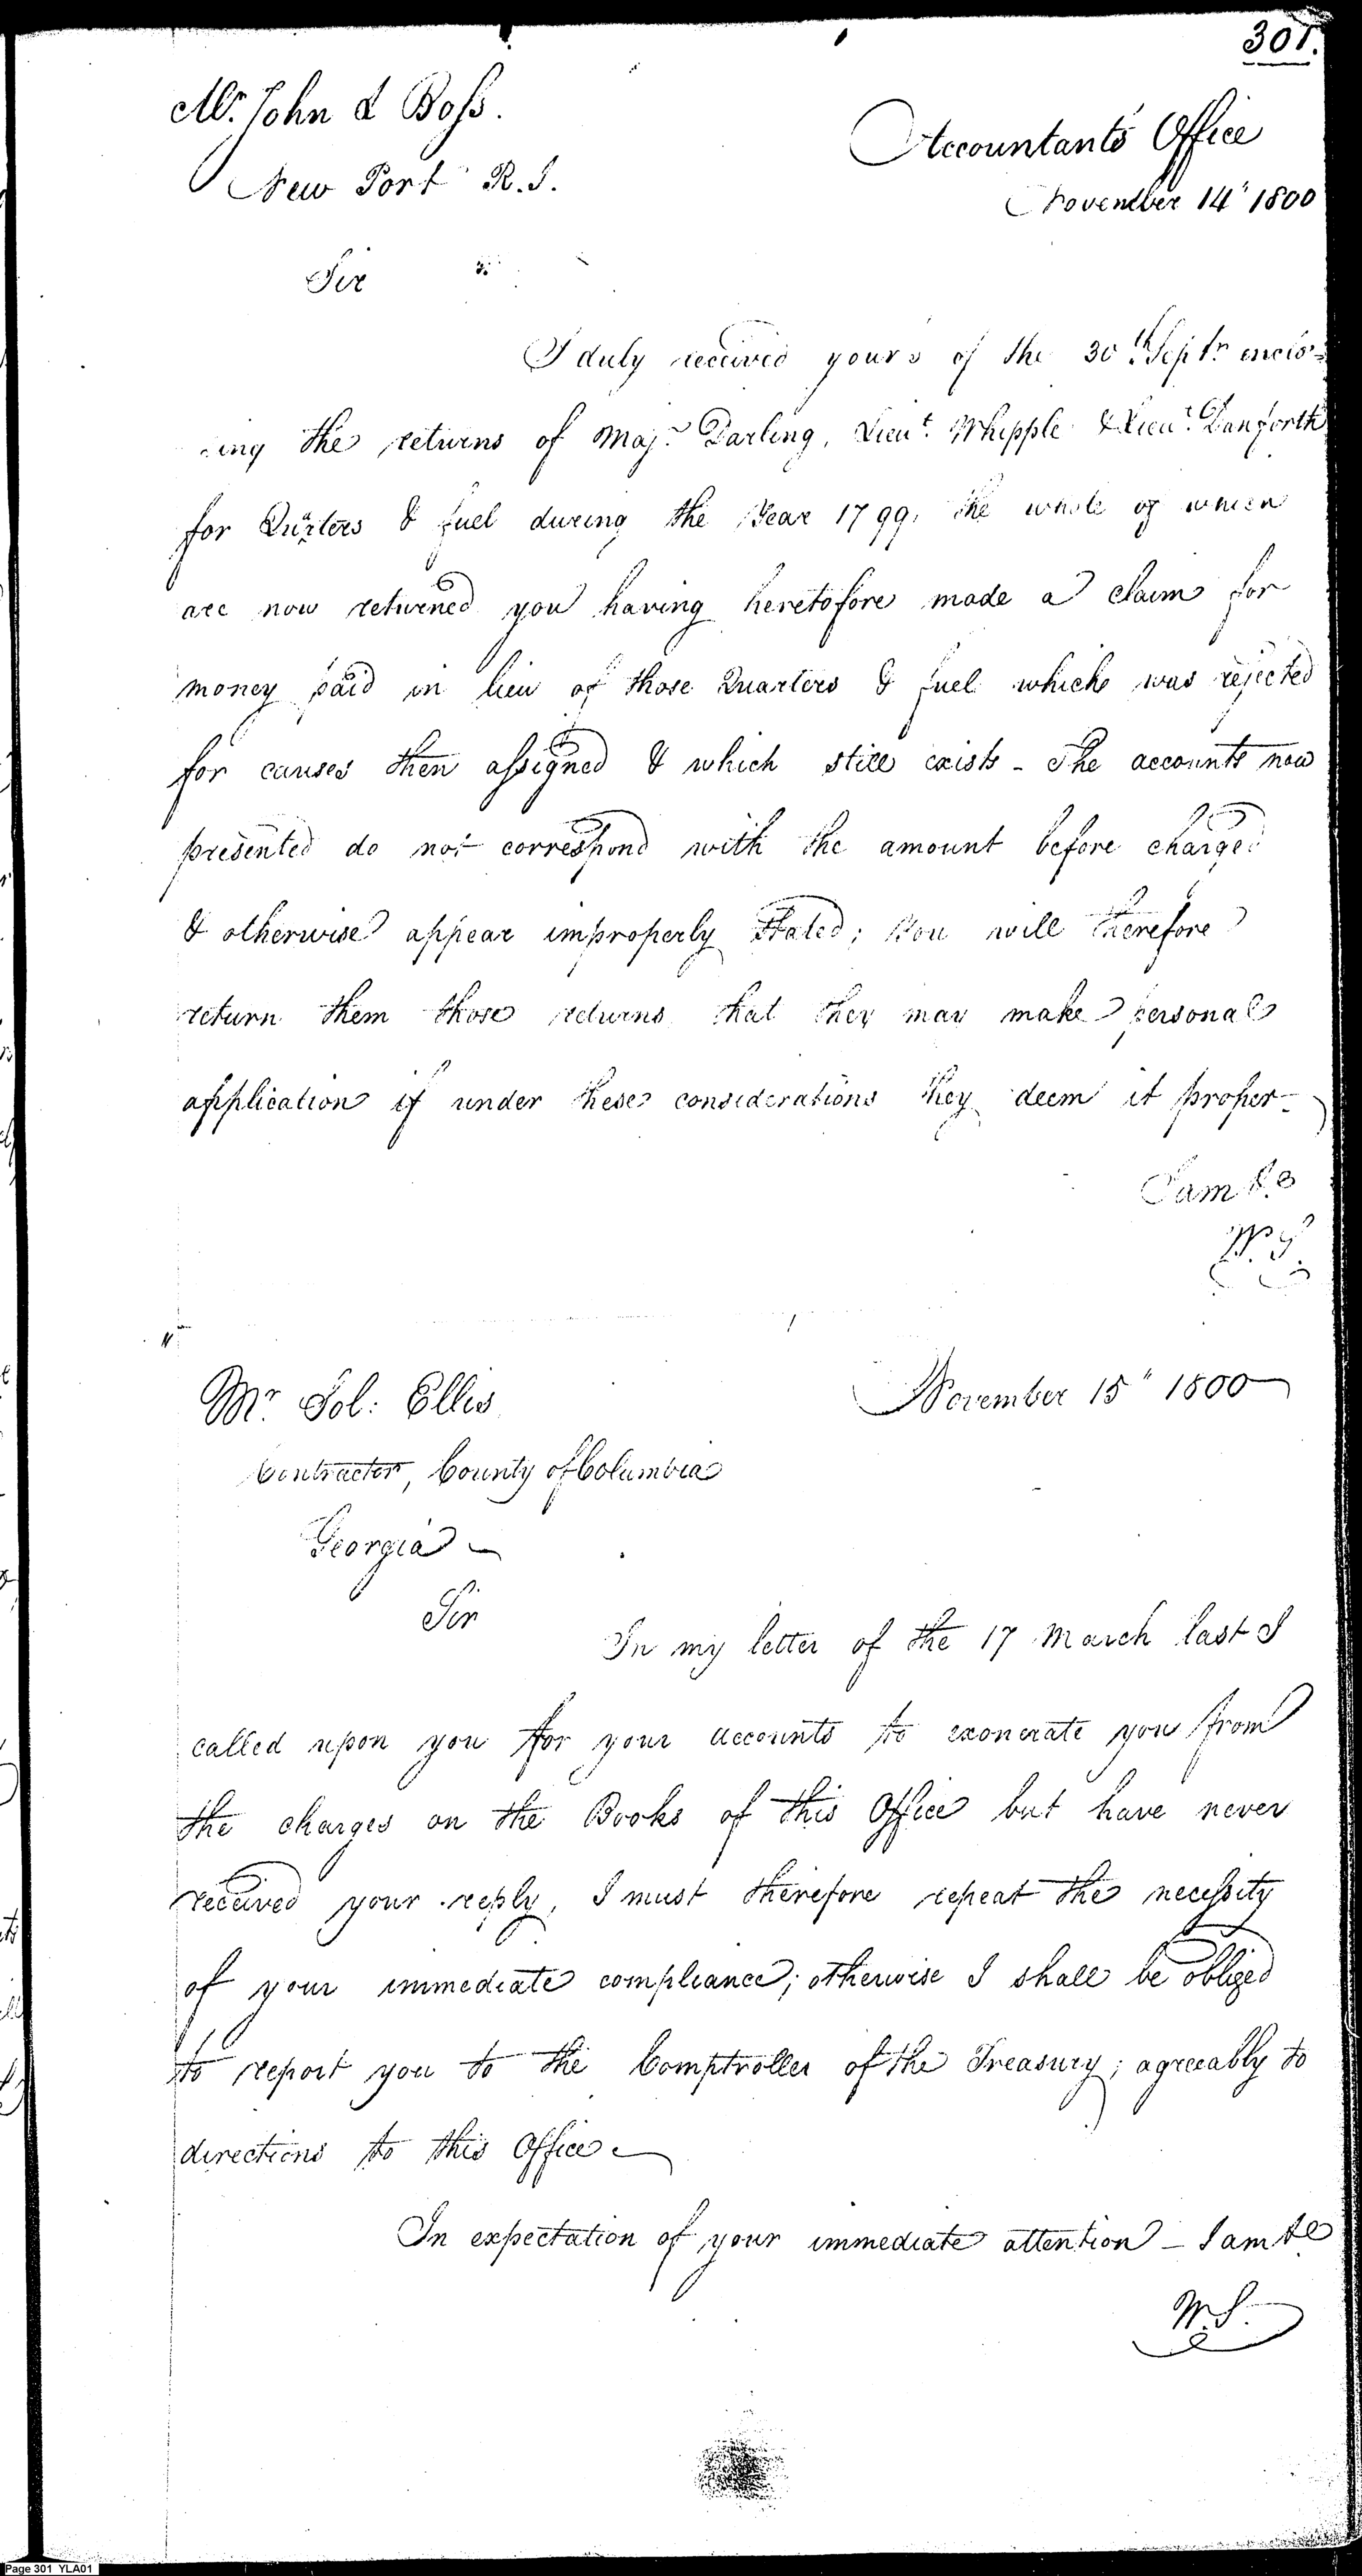 301.
Mr. John L Boss.
Accountants Office
New Port R.I.
November 14" 1800
Sir
I duly received yours of the 30th Septr. enclo=
:ing the returns of Majr. Darling, Lieut. Whipple & Lieut. Danforth
for Qurters & fuel during the Year 1799, the whole of which
are now returned you having heretofore made a claim for
money paid in lieu of those Quarters & fuel which was rejected
for causes then assigned & which still exists - The accounts now
presented do not correspond with the amount before charged
& otherwise appear improperly stated; You will therefore
return them those returns that they may make personal
application if under these considerations they deem it proper-
I am &c
W. S.
Mr. Sol: Ellis
November 15" 1800
Contractor, County of Columbia
Georgia
Sir
In my letter of the 17 March last I
called upon you for your accounts to exonerate you from
the charges on the Books of this Office but have never
received your reply, I must therefore repeat the necessity
of your immediate compliance; otherwise I shall be obliged
to report you to the Comptroller of the Treasury; agreeably to
directions to this Office
In expectation of your immediate attention - I am &c
W. S.
Page 301 YLA01